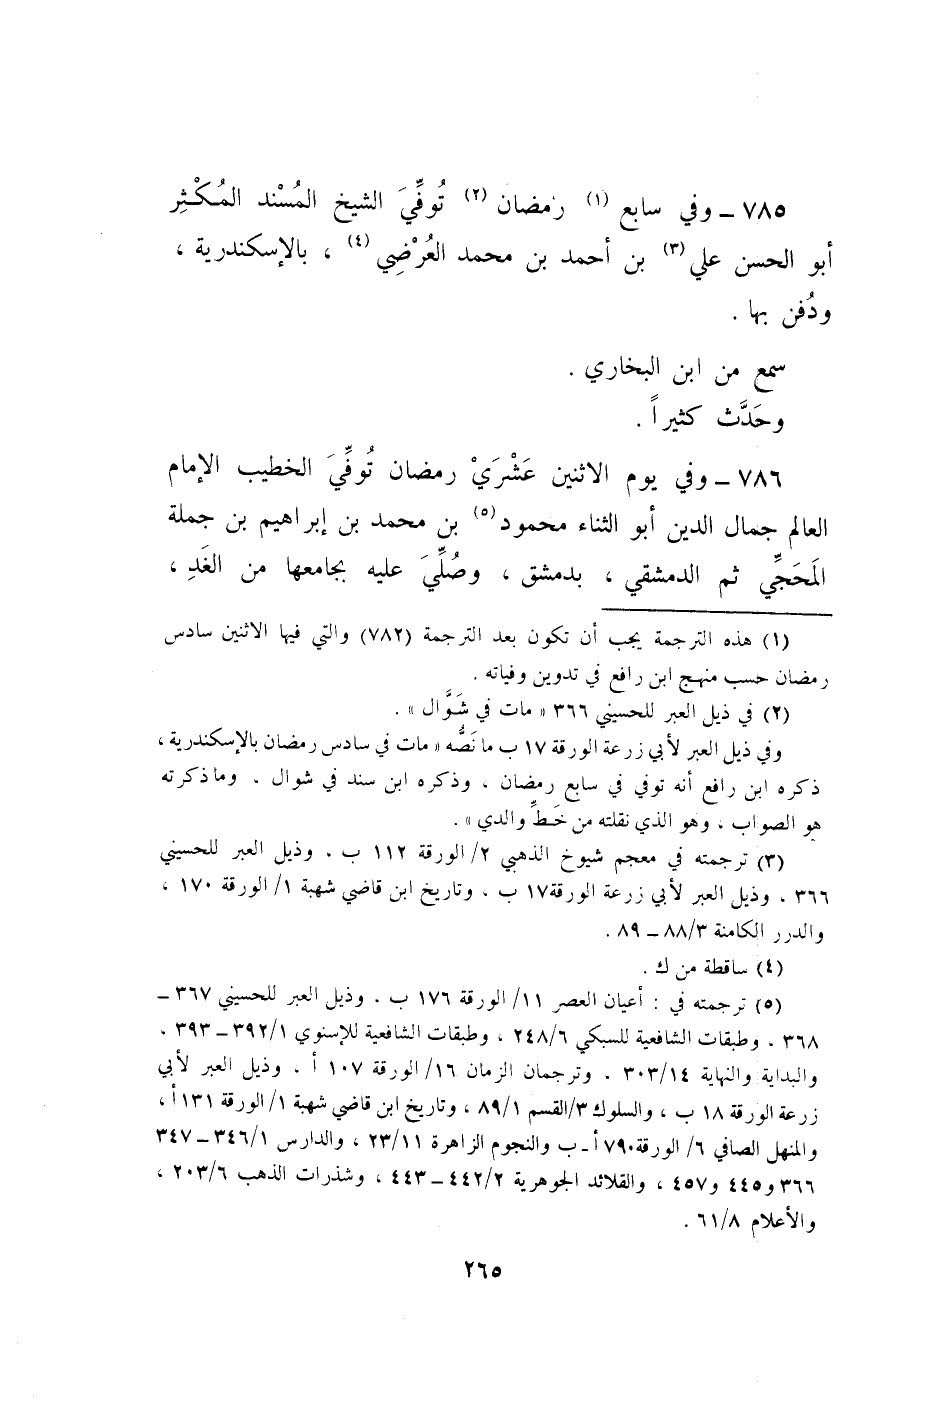 ٧٨٥ ـ وفي سابع (١) رمضان (٢) تُوفِّيَ الشيخ المُسْند المُكْثِر
أبو الحسن علي (٣) بن أحمد بن محمد العُرْضِي (٤) ، بالإسكندرية ،
ودُفن بها .
سمع من ابن البخاري .
وحَدَّث كثيراً .
٧٨٦ ـ وفي يوم الاثنين عَشْرَيْ رمضان تُوفِّيَ الخطيب الإمام
العالم جمال الدين أبو الثناء محمود (٥) بن محمد بن إبراهيم بن جملة
المَحَجِّي ثم الدمشقي ، بدمشق ، وصُلِّيَ عليه بجامعها من الغَدِ ،
(١) هذه الترجمة يجب أن تكون بعد الترجمة (٧٨٢) والتي فيها الاثنين سادس
رمضان حسب منهج ابن رافع في تدوين وفياته .
(٢) في ذيل العبر للحسيني ٣٦٦ « مات في شَوَّال » .
وفي ذيل العبر لأبي زرعة الورقة ١٧ ب ما نَصُّه « مات في سادس رمضان بالإسكندرية ،
ذكره ابن رافع أنه توفي في سابع رمضان . وذكره ابن سند في شوال . وما ذكرته
هو الصواب ، وهو الذي نقلته من خَطِّ والدي » .
(٣) ترجمته في معجم شيوخ الذهبي ٢/ الورقة ١١٢ ب . وذيل العبر للحسيني
٣٦٦ . وذيل العبر لأبي زرعة الورقة١٧ ب . وتاريخ ابن قاضي شهبة ١/ الورقة ١٧٠ ،
والدرر الكامنة ٨٨/٣ ـ ٨٩ .
(٤) ساقطة من ك .
(٥) ترجمته في : أعيان العصر ١١/ الورقة ١٧٦ ب . وذيل العبر للحسيني ٣٦٧ ـ
٣٦٨ . وطبقات الشافعية للسبكي ٢٤٨/٦ ، وطبقات الشافعية للإسنوي ٣٩٢/١ ـ ٣٩٣ .
والبداية والنهاية ٣٠٣/١٤ . وترجمان الزمان ١٦/ الورقة ١٠٧ أ . وذيل العبر لأبي
زرعة الورقة ١٨ ب ، والسلوك ٣/القسم ٨٩/١ ، وتاريخ ابن قاضي شهبة ١/ الورقة ١٣١أ ،
والمنهل الصافي ٦/ الورقة٧٩٠ أ ـ ب والنجوم الزاهرة ٢٣/١١ ، والدارس ٣٤٦/١ ـ ٣٤٧
٣٦٦ و٤٤٥ و٤٥٧ ، والقلائد الجوهرية ٤٤٢/٢ ـ ٤٤٣ ، وشذرات الذهب ٢٠٣/٦ ،
والأعلام ٦١/٨ .
٢٦٥